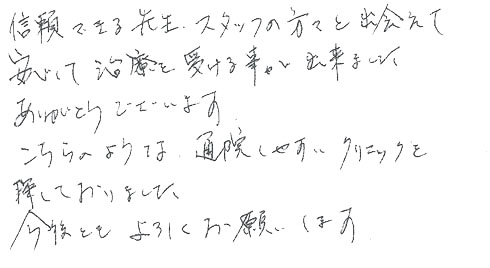 信頼できる先生、スタッフの方々と出会えて
安心して治療を受ける事が出来ました
ありがとうございます
こちらのような、通院しやすいクリニックを
探しておりました、
今後ともよろしくお願いします